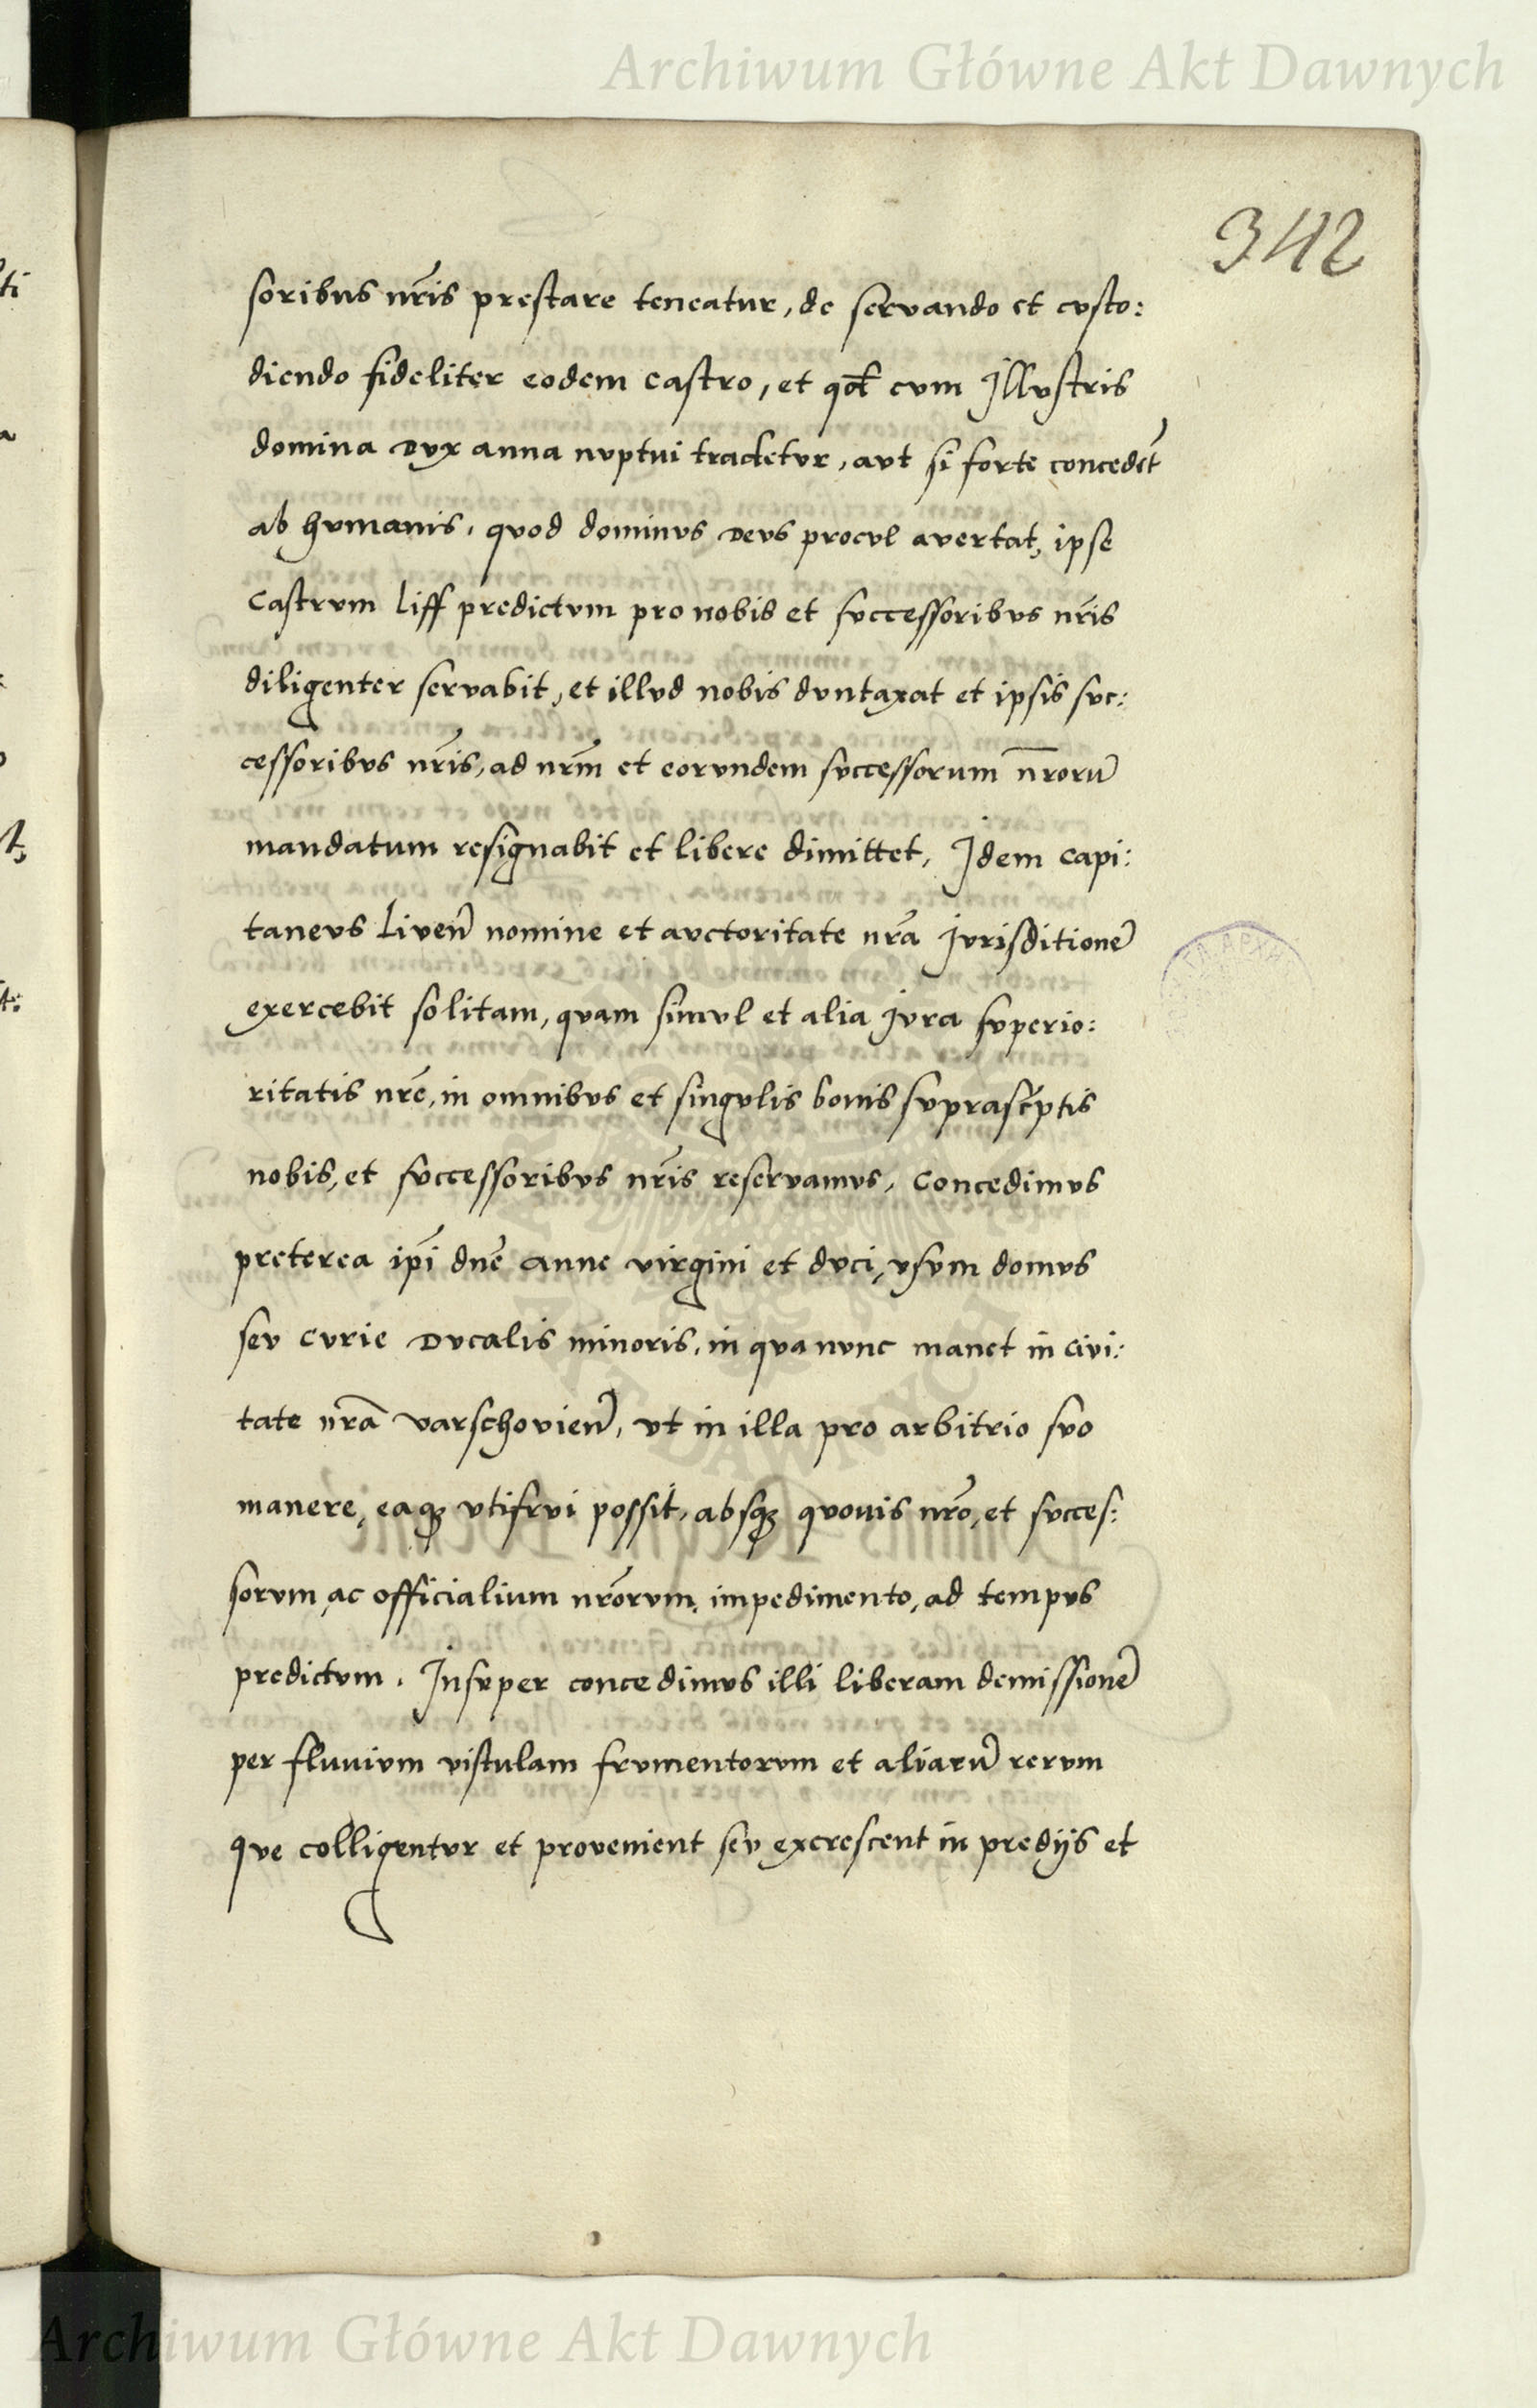 Archiwum Główne Akt Dawnych
342
soribus nr̃is prestare teneatur, de seruando et cvsto:
diendo fideliter eodem castro, et qđ cvm Jllvstris
domina Dvx anna nvptui tradetvr, avt si forte concedet̃
ab hvmanis, qvod dominvs Devs procvl avertat, ipse
Castrvm liff predictvm pro nobis et svccessoribvs nr̃is
diligenter servabit, et illvd nobis dvntaxat et ipsis svc:
cessoribvs nr̃is, ad nr̃m et eorvndem svccessorum nr̃orū
mandatum resignabit et libere dimittet, Jdem capi:
tanevs Liven̄ nomine et avctoritate nr̃a Jvrisditionē
exercebit solitam, qvam simvl et alia Jvra svperio:
ritatis nr̃e, in omnibvs et singvlis bonis svprasc̃ptis
nobis, et svccessoribvs nr̃is reservamvs, Concedimvs
preterea ip̃i dn̄e Anne virgini et dvci, vsvm domvs
sev Cvrie Dvcalis minoris, in qva nvnc manet in Civi:
tate nr̃a varschovien̄, vt in illa pro arbitrio svo
manere, eaqꝫ vtifrvi possit, absqꝫ qvovis nr̃o, et svcces:
sorvm, ac officialium nr̃orvm, impedimento, ad tempvs
predictvm. Jnsvper concedimvs illi liberam demissionē
per flvuivm vistulam frvmentorvm et aliarū rervm
qve colligentvr et provenient sev excrescent in predijs et
Archiwum Główne Akt Dawnych